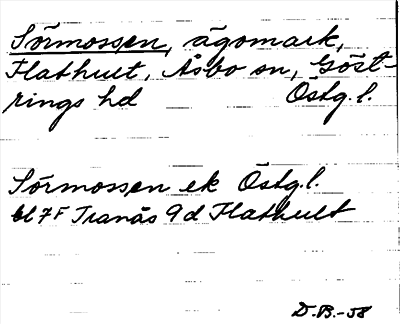 Sörmossen, ägomark,
Flathult, Åsbo sn, Göst-
rings hd Östg.l.
Sörmossen ek Östg.l.
bl 7F Tranås 9d Flathult
D.B.-58